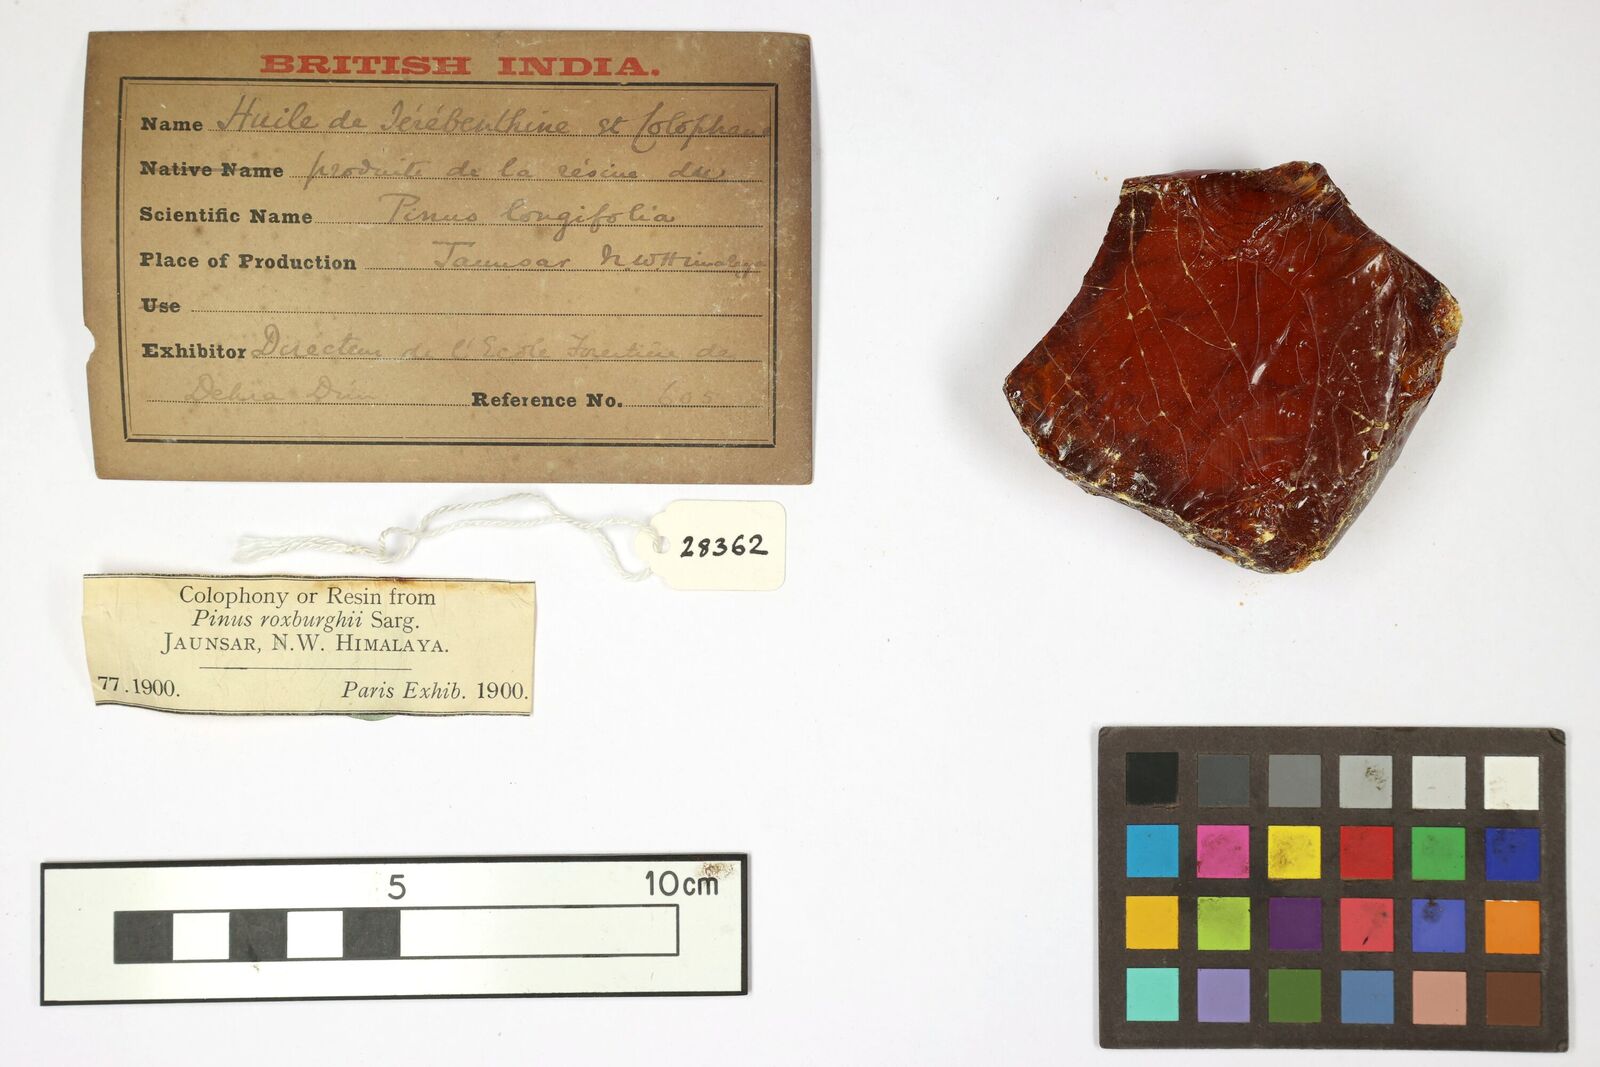 BRITISH INDIA.
Name Huile de Térébenthine et Colophane
Native Name produits de la résine du
Scientific Name Pinus longifolia
Place of Production Jaunsar N.W Himalaya
Use
Exhibitor Directeur de l'Ecole Forestière de
Dehra Dun Reference No. 605
28362
Colophony or Resin from
Pinus roxburghii Sarg.
JAUNSAR, N.W. HIMALAYA.
77.1900. Paris Exhib. 1900.
5 10cm